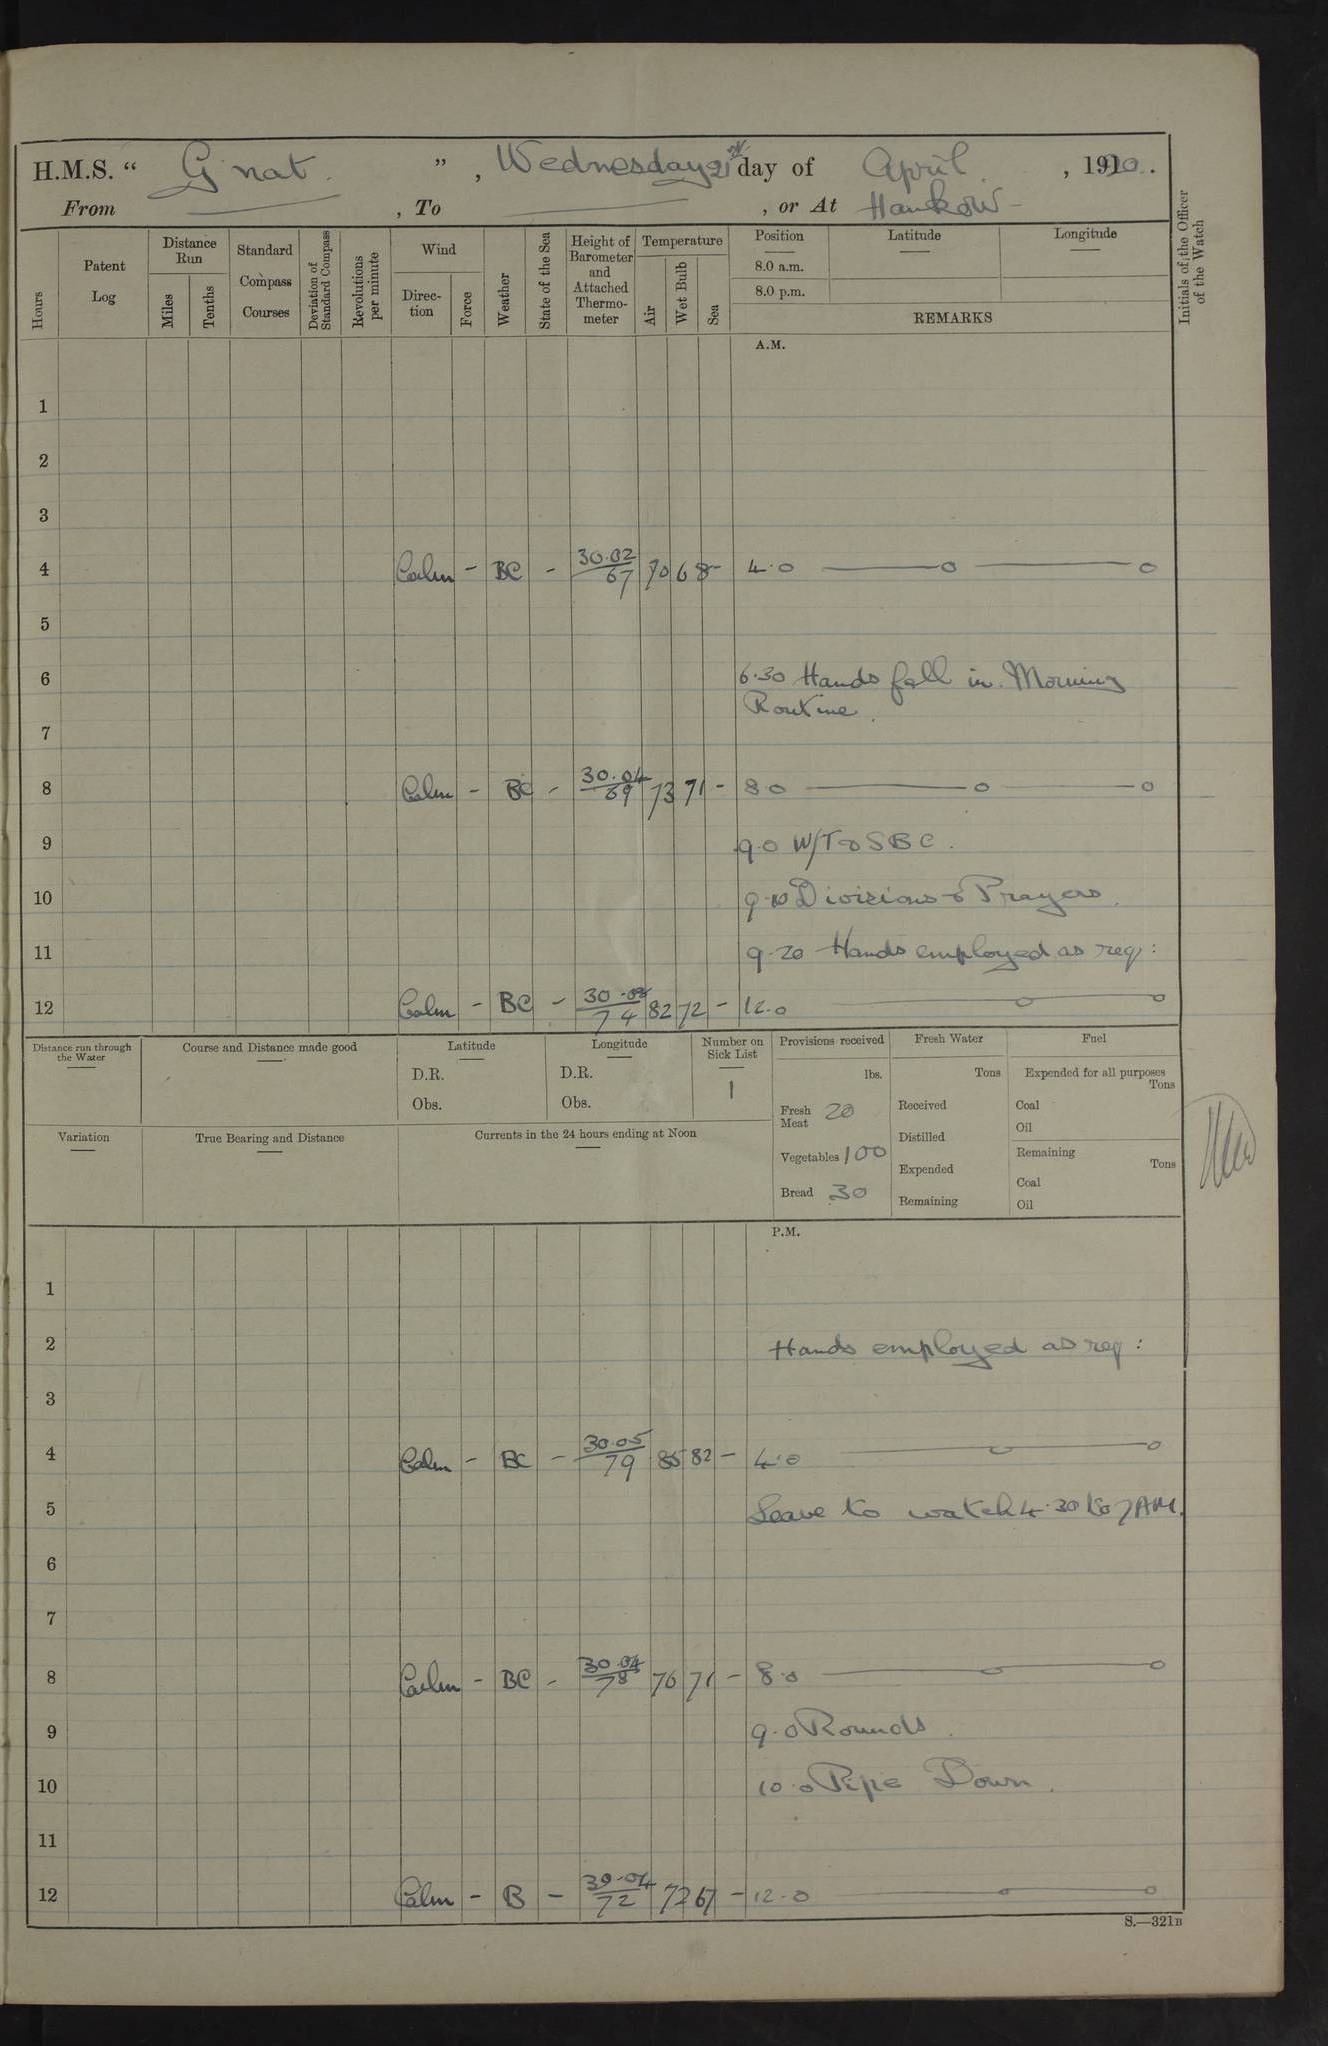 H.M.S. “ Gnat. ” , Wednesday 21st day of April , 1920.
From , To , or At Hankow
Hours
Patent Log
Distance Run
Miles
Tenths
Standard Compass Courses
Deviation of Standard Compass
Revolutions per minute
Wind
Direction
Force
Weather
State of the Sea
Height of Barometer and Attached Thermometer
Temperature
Air
Wet Bulb
Sea
Position
8.0 a.m.
8.0 p.m.
Latitude
Longitude
REMARKS
Initials of the Officer of the Watch
A.M.
1
2
3
4 Calm - BC - 30.02/67 70 68 - 4.0
5
6 6.30 Hands fall in. Morning
Routine.
7
8 Calm - BC - 30.04/69 73 71 - 8.0
9 9.0 W/T & SBC.
10 9.10 Divisions & Prayers.
11 9.20 Hands employed as req:
12 Calm - BC - 30.08/74 82 72 - 12.0
Distance run through the Water
Course and Distance made good
Latitude
D.R.
Obs.
Longitude
D.R.
Obs.
Number on Sick List
1
Provisions received
lbs.
Fresh Meat 20
Vegetables 100
Bread 30
Fresh Water
Tons
Received
Distilled
Expended
Remaining
Fuel
Expended for all purposes
Tons
Coal
Oil
Remaining
Tons
Coal
Oil
Variation
True Bearing and Distance
Currents in the 24 hours ending at Noon
P.M.
1
2 Hands employed as req:
3
4 Calm - BC - 30.05/79 85 82 - 4.0
5 Leave to watch 4.30 to 7AM.
6
7
8 Calm - BC - 30.04/78 76 71 - 8.0
9 9.0 Rounds.
10 10.0 Pipe Down.
11
12 Calm - B - 30.04/72 72 67 - 12.0
S.—321B